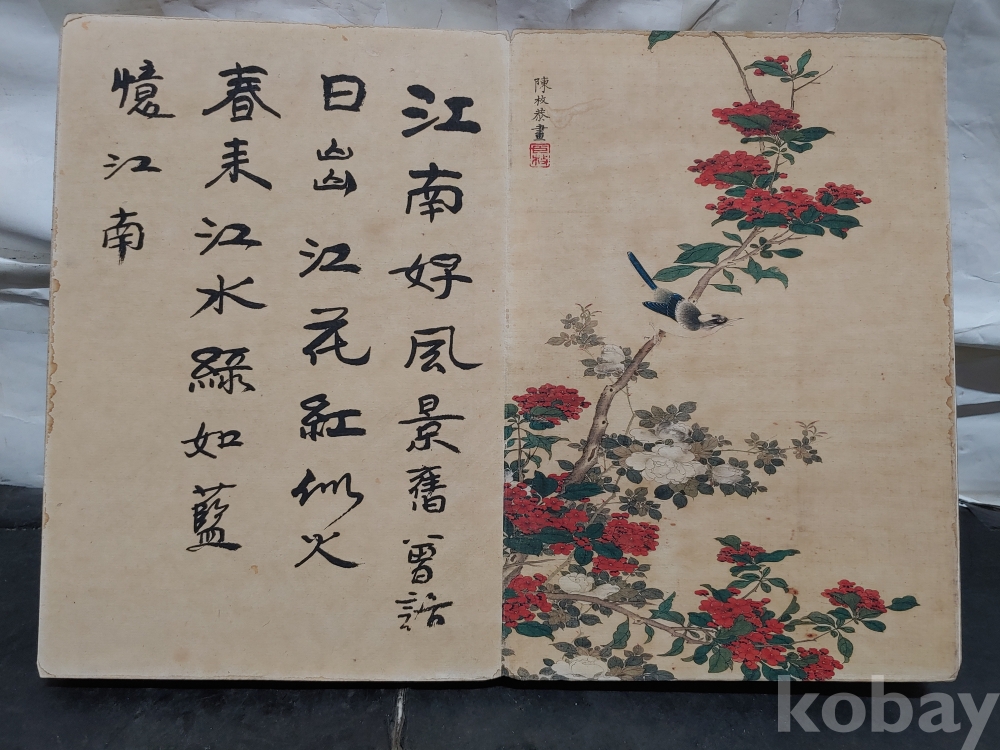 江南好風景舊曾諳
日出江花紅似火
春来江水綠如藍
憶江南
陳枚恭畫
臣枚
kobay